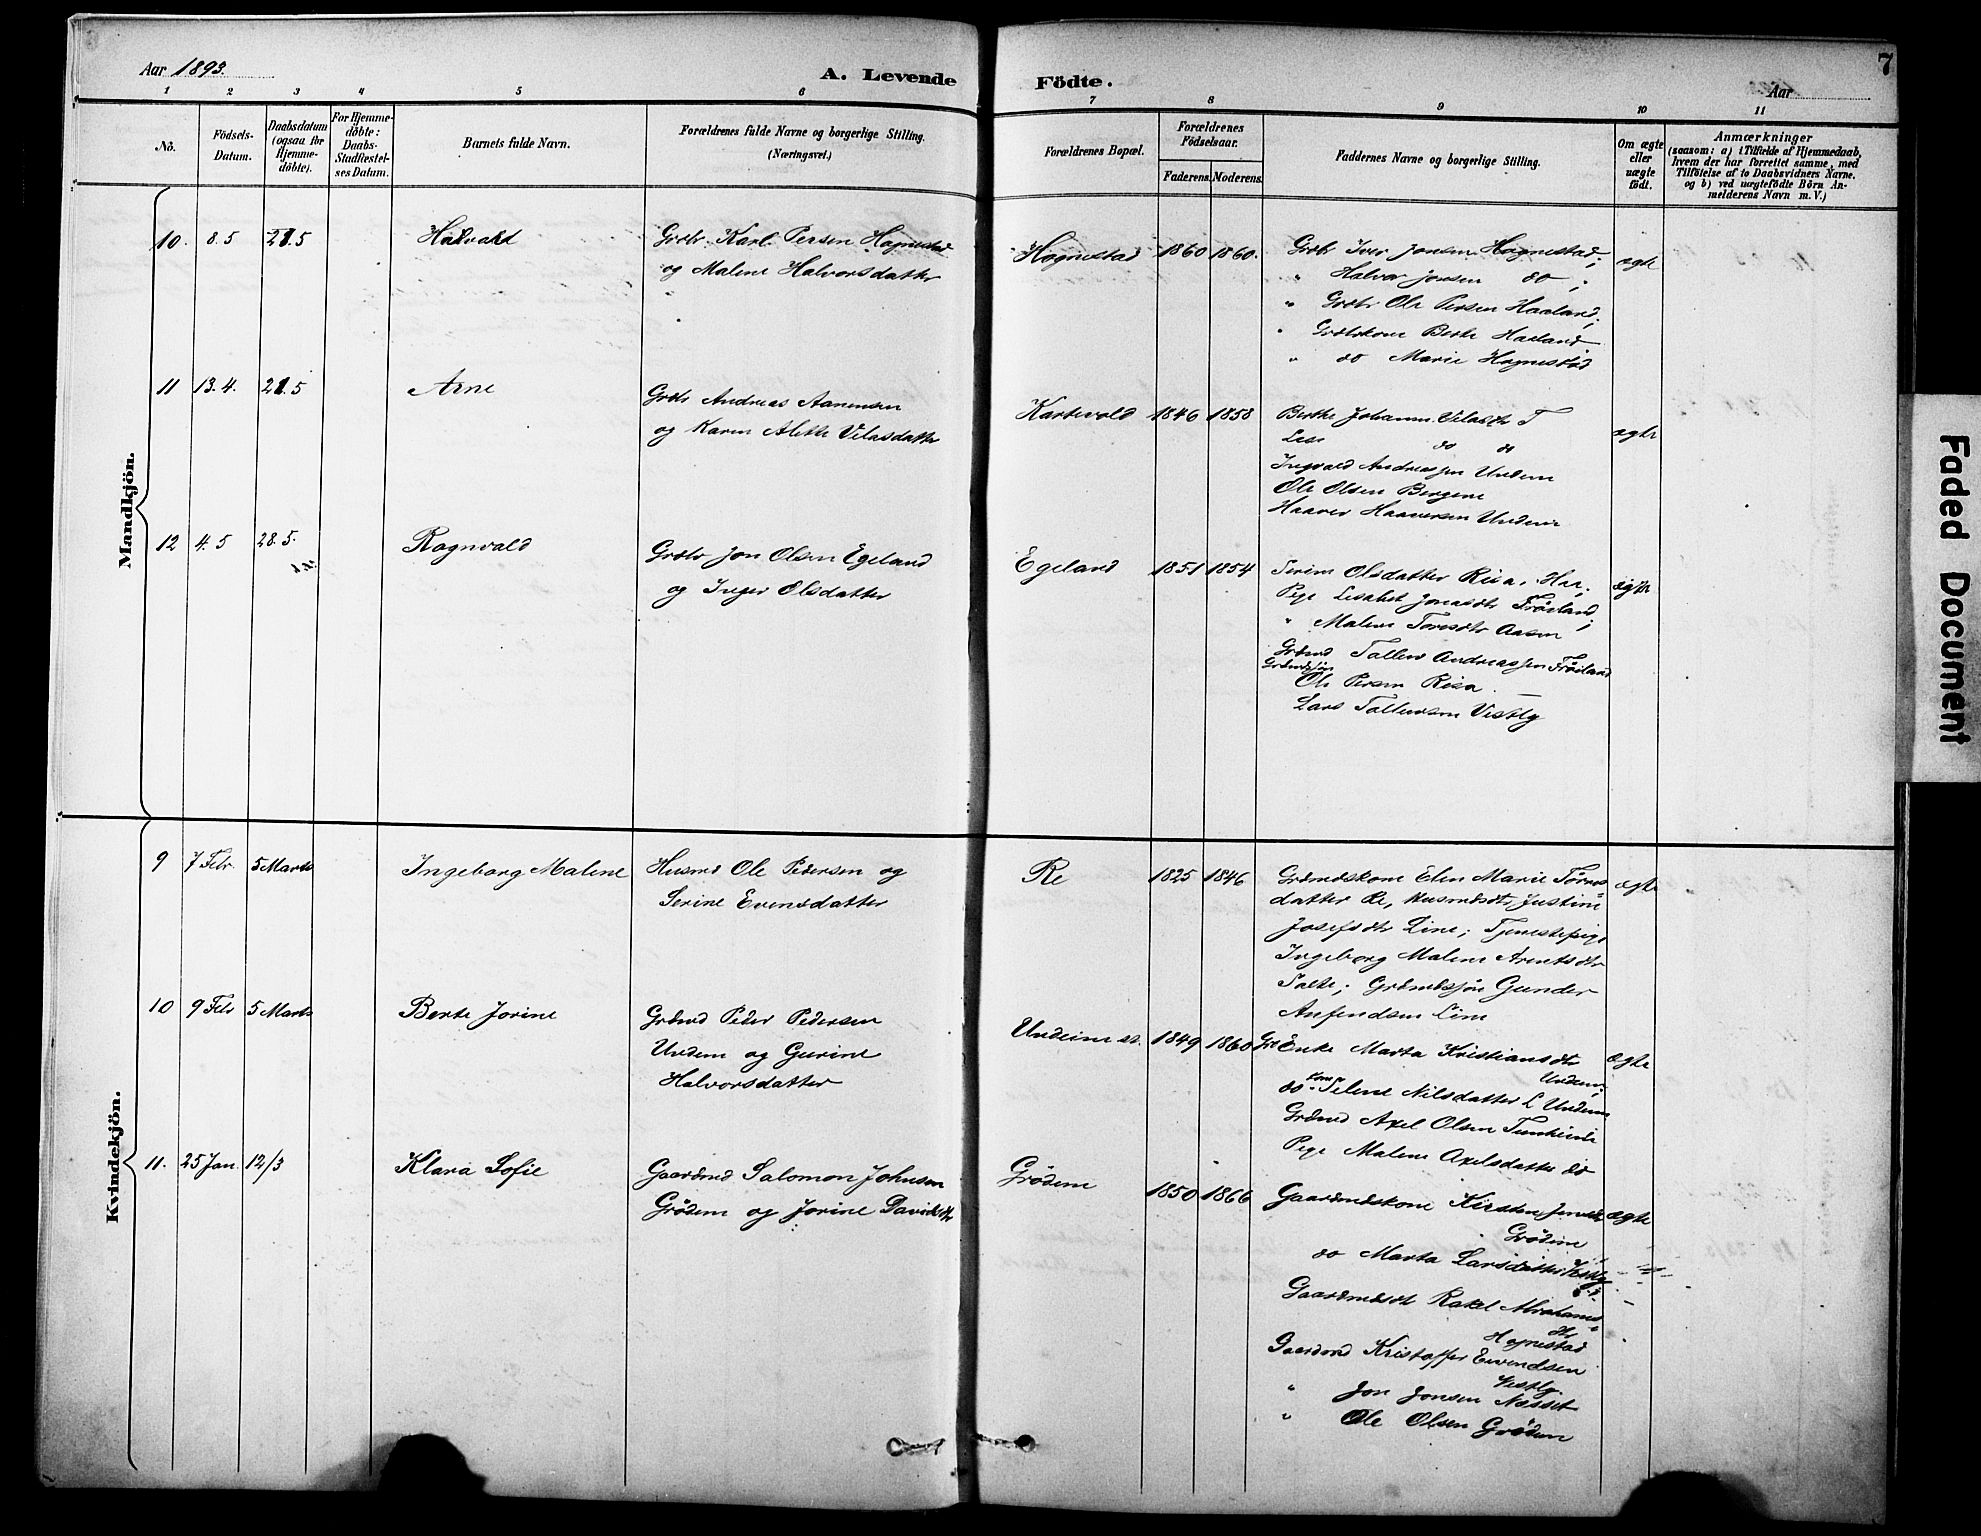 Aar 1893.
A. Levende Födte.
Aar
7
1 2 3 4 5 6 7 8 9 10 11
No.
Födsels-Datum.
Daabsdatum (ogsaa for Hjemmedöbte).
For Hjemmedöbte: Daabs-Stadfestelses Datum.
Barnets fulde Navn.
Forældrenes fulde Navne og borgerlige Stilling.
(Næringsvei.)
Forældrenes Bopæl.
Forældrenes Födselsaar.
Faderens. Moderens.
Faddernes Navne og borgerlige Stilling.
Om ægte eller uægte födt.
Anmærkninger
(saasom: a) i Tilfælde af Hjemmedaab,
hvem der har forrettet samme, med
Tilföielse af to Daabsvidners Navne.
og b) ved uægtefödte Börn An-
melderens Navn m. V.)
Mandkjön.
10. 8.5 21.5 Halvald
Grdbr. Karl Persen Hognestad
og Malene Halvorsdatter
Hognestad 1860 1860.
Grdbr Iver Jonsen Hognestad;
" Halvor Jonsen do ;
" Grdbr Ole Persen Haaland;
" Grdbrkone Berte Haaland
" do Marie Hognestad
ægte
11 13.4. 21.5 Arne
Grdbr Andreas Aanensen
og Karen Alette Velasdatter
Kartevold 1846 1858
Berthe Johanne Velasdtr T
Lise do do
Ingvald Andreassen Undem
Ole Olsen Bergene
Haaver Haaversen Undem
ægte
12 4.5 28.5. Ragnvald
Grdbr Jon Olsen Egeland
og Inger Olsdatter
Egeland 1851 1854
Serine Olsdatter Risa, Haa;
Pige Lisabet Jonasdtr Fröiland;
" Malene Toresdtr Aasen
Grdmd Tollev Andreassen Fröiland
Grdmdssön
Ole Persen Risa
Lars Tollevsen Vestly
ægte
Kvindekjön.
9 7 Febr. 5 Marts Ingeborg Malene
Husmd Ole Pedersen og
Serine Evensdatter
Re 1825 1846
Grdmdskone Elen Marie Törres-
datter Re, Husmdsdtr Justine
Josefsdtr Line; Tjenestepige
Ingeborg Malene Arentsdtr
Salte; Grdmdssön Gunder
Anfindsen Line
ægte
10 9 Febr 5 Marts Berte Jorine
Grdmd Peder Pedersen
Undem og Gurine
Halvorsdatter
Undeim st. 1849 1860
Grd Enke Marta Kristiansdtr
Undem;
do Kone Selene Nilsdatter L Undem
Grdmd Axel Olsen Tunheim
Pige Malene Axelsdatter do
ægte
11. 25 Jan. 12/3 Klara Sofie
Gaardmd Salomon Johnsen
Grödem og Jorine Davidsdtr
Grödem 1850 1866
Gaardmdskone Kirsten Jonsdtr
Grödem
do Marta Larsdatter Vestly
Gaardmdsdtr Rakel Abrahams-
dtr
Hognestad
Gaardmd Kristoffer Eivendsen
Vestly.
" Jon Jonsen Næsset
" Ole Olsen Grödem
ægte
Faded Document